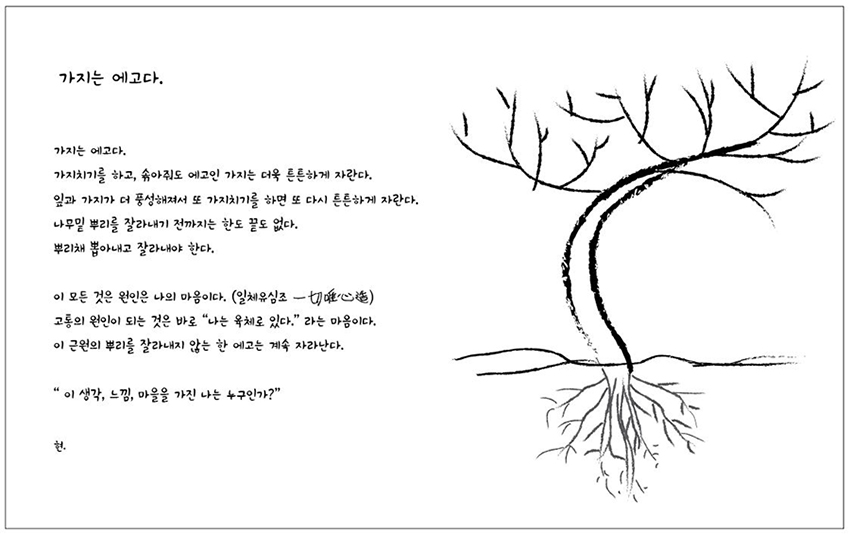 가지는 에고다.
가지는 에고다.
가지치기를 하고, 솎아줘도 에고인 가지는 더욱 튼튼하게 자란다.
잎과 가지가 더 풍성해져서 또 가지치기를 하면 또 다시 튼튼하게 자란다.
나무밑 뿌리를 잘라내기 전까지는 한도 끝도 없다.
뿌리채 뽑아내고 잘라내야 한다.
이 모든 것은 원인은 나의 마음이다. (일체유심조 一切唯心造)
고통의 원인이 되는 것은 바로 “나는 육체로 있다.” 라는 마음이다.
이 근원의 뿌리를 잘라내지 않는 한 에고는 계속 자라난다.
“ 이 생각, 느낌, 마을을 가진 나는 누구인가?”
현.